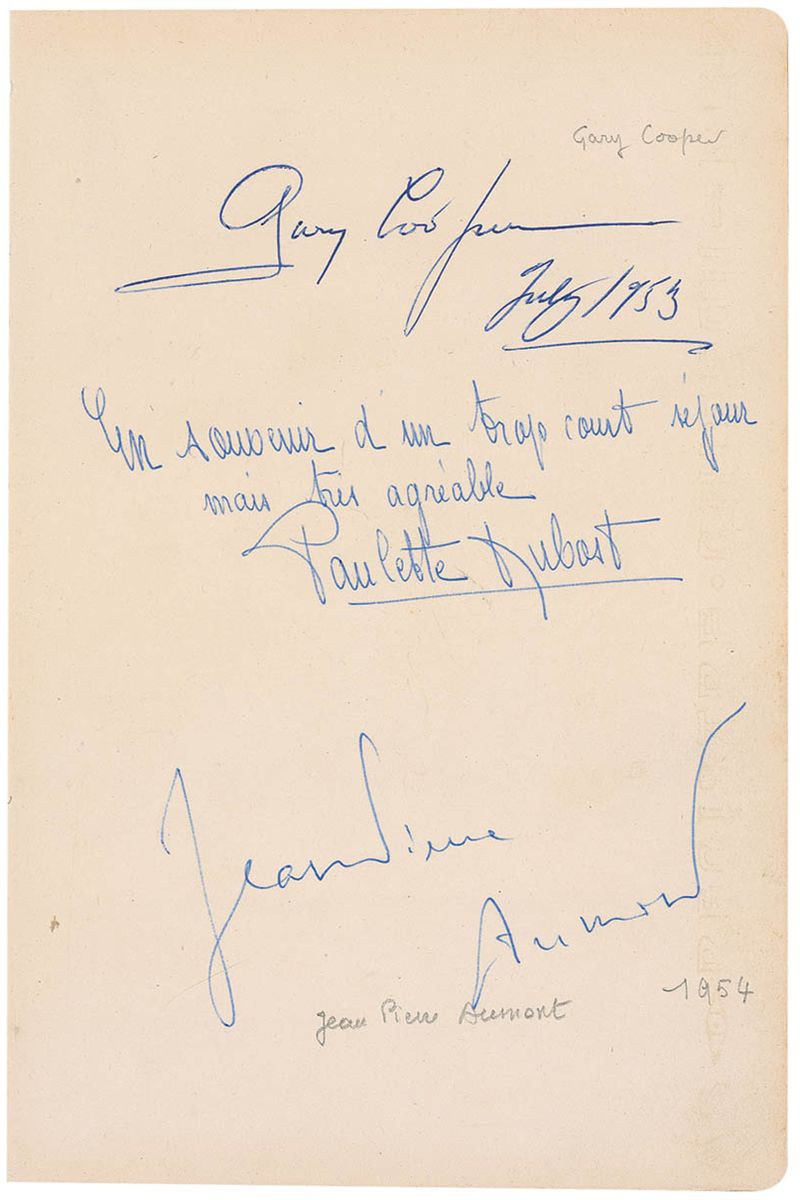 Gary Cooper
Gary Cooper
July 1953
En souvenir d'un trop court séjour
mais très agréable
Paulette Dubost
Jean Pierre
Aumont
1954
Jean Pierre Aumont